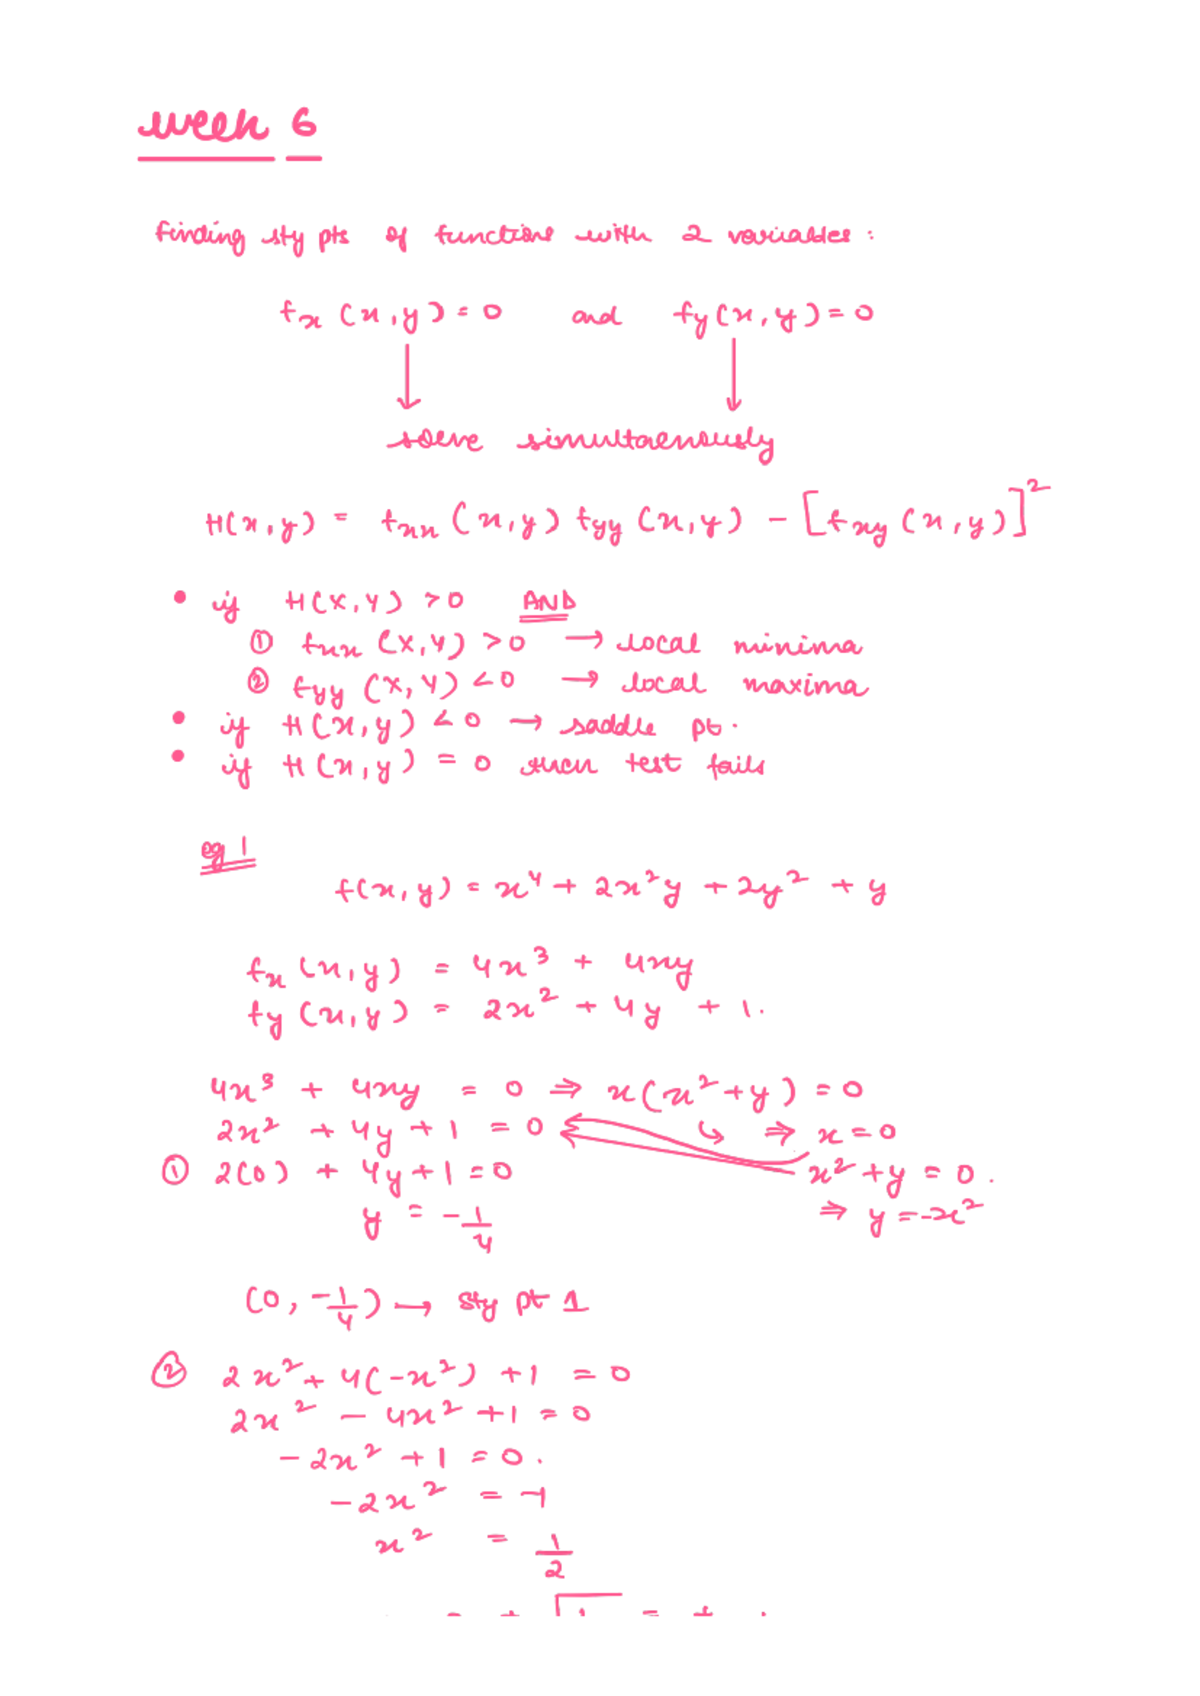 week 6
finding sty pts of functions with 2 variables :
fx (x,y) = 0 and fy (x,y) = 0
↓ ↓
solve simultaenously
H(x,y) = fxx (x,y) fyy (x,y) - [fxy (x,y)]²
• if H(X,Y) > 0 AND
① fxx (X,Y) > 0 → local minima
② fyy (X,Y) < 0 → local maxima
• if H(x,y) < 0 → saddle pt.
• if H(x,y) = 0 then test fails
eg 1
f(x,y) = x⁴ + 2x²y + 2y² + y
fx (x,y) = 4x³ + 4xy
fy (x,y) = 2x² + 4y + 1.
4x³ + 4xy = 0 ⇒ x(x²+y) = 0
2x² + 4y + 1 = 0 ↳ ⇒ x = 0
① 2(0) + 4y + 1 = 0 x² + y = 0.
y = -1/4 ⇒ y = -x²
(0, -1/4) → sty pt 1
② 2x² + 4(-x²) + 1 = 0
2x² - 4x² + 1 = 0
- 2x² + 1 = 0.
- 2x² = -1
x² = 1/2